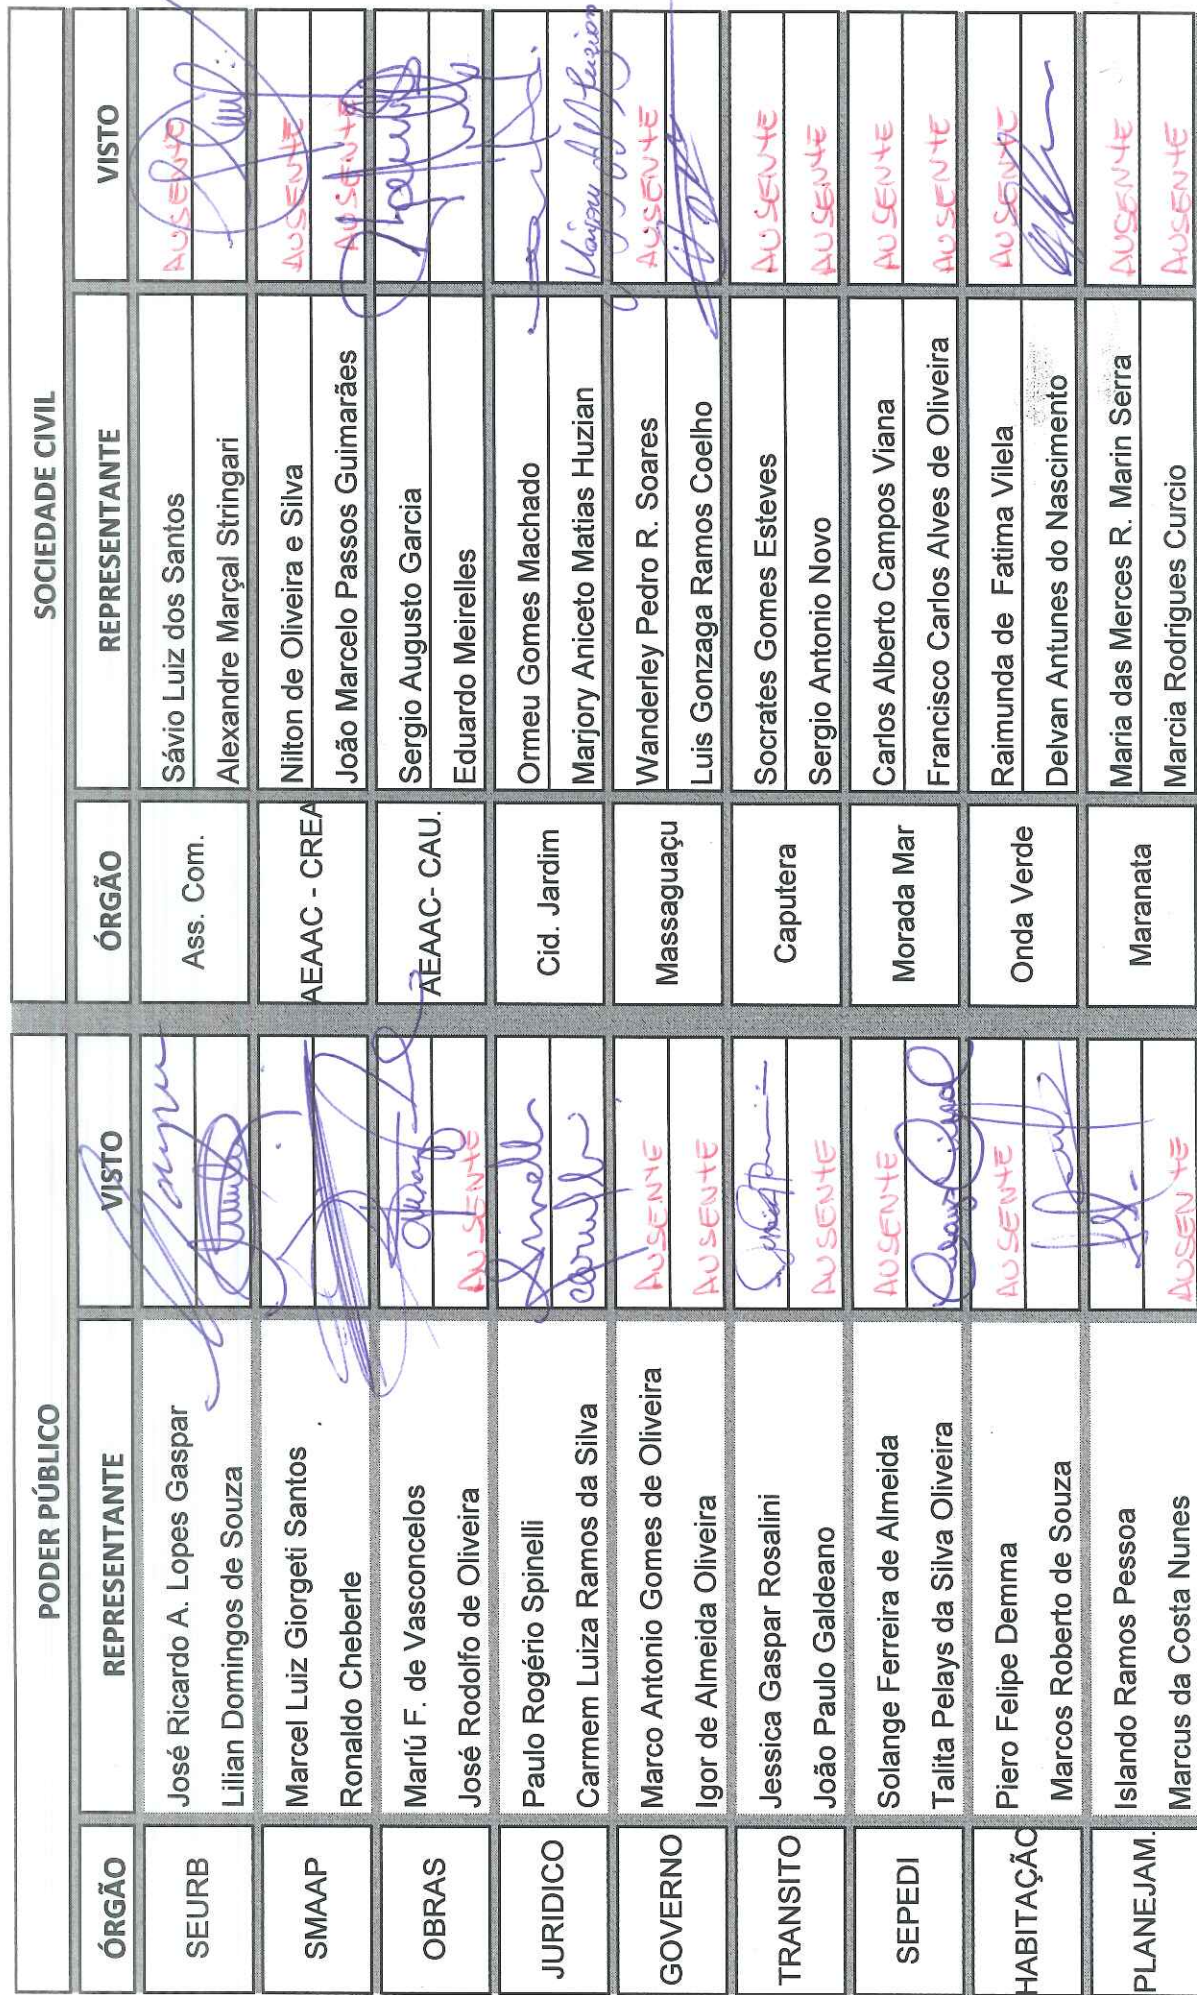 PODER PÚBLICO
ÓRGÃO REPRESENTANTE VISTO
SEURB José Ricardo A. Lopes Gaspar
Lilian Domingos de Souza
SMAAP Marcel Luiz Giorgeti Santos
Ronaldo Cheberle
OBRAS Marlú F. de Vasconcelos
José Rodolfo de Oliveira AUSENTE
JURIDICO Paulo Rogério Spinelli
Carmem Luiza Ramos da Silva
GOVERNO Marco Antonio Gomes de Oliveira AUSENTE
Igor de Almeida Oliveira AUSENTE
TRANSITO Jessica Gaspar Rosalini
João Paulo Galdeano AUSENTE
SEPEDI Solange Ferreira de Almeida AUSENTE
Talita Pelays da Silva Oliveira
HABITAÇÃO Piero Felipe Demma AUSENTE
Marcos Roberto de Souza
PLANEJAM. Islando Ramos Pessoa
Marcus da Costa Nunes AUSENTE
SOCIEDADE CIVIL
ÓRGÃO REPRESENTANTE VISTO
Ass. Com. Sávio Luiz dos Santos AUSENTE
Alexandre Marçal Stringari
AEAAC - CREA Nilton de Oliveira e Silva AUSENTE
João Marcelo Passos Guimarães AUSENTE
AEAAC- CAU. Sergio Augusto Garcia
Eduardo Meirelles
Cid. Jardim Ormeu Gomes Machado
Marjory Aniceto Matias Huzian
Massaguaçu Wanderley Pedro R. Soares AUSENTE
Luis Gonzaga Ramos Coelho
Caputera Socrates Gomes Esteves AUSENTE
Sergio Antonio Novo AUSENTE
Morada Mar Carlos Alberto Campos Viana AUSENTE
Francisco Carlos Alves de Oliveira AUSENTE
Onda Verde Raimunda de Fatima Vilela AUSENTE
Delvan Antunes do Nascimento
Maranata Maria das Merces R. Marin Serra AUSENTE
Marcia Rodrigues Curcio AUSENTE